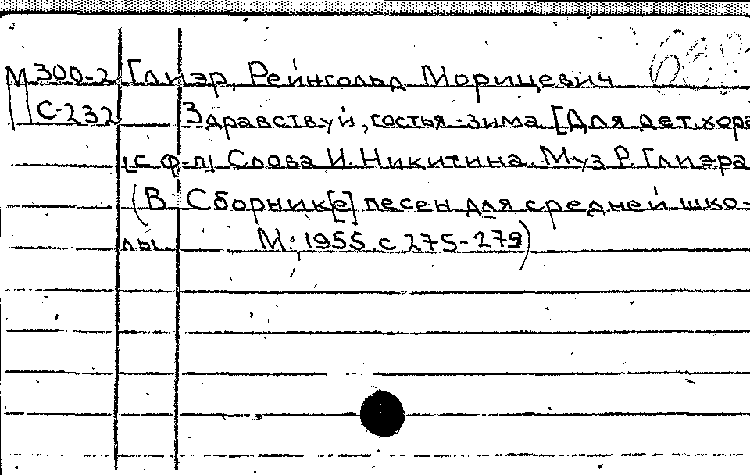 М 300-2 Глиэр, Рейнгольд Морицевич
С-232 Здравствуй, гостья-зима [Для дет. хора
[с ф-п] Слова И. Никитина Муз Р. Глиэра
(В Сборник[е] песен для средней шко-
лы М; 1955 с 275-279)